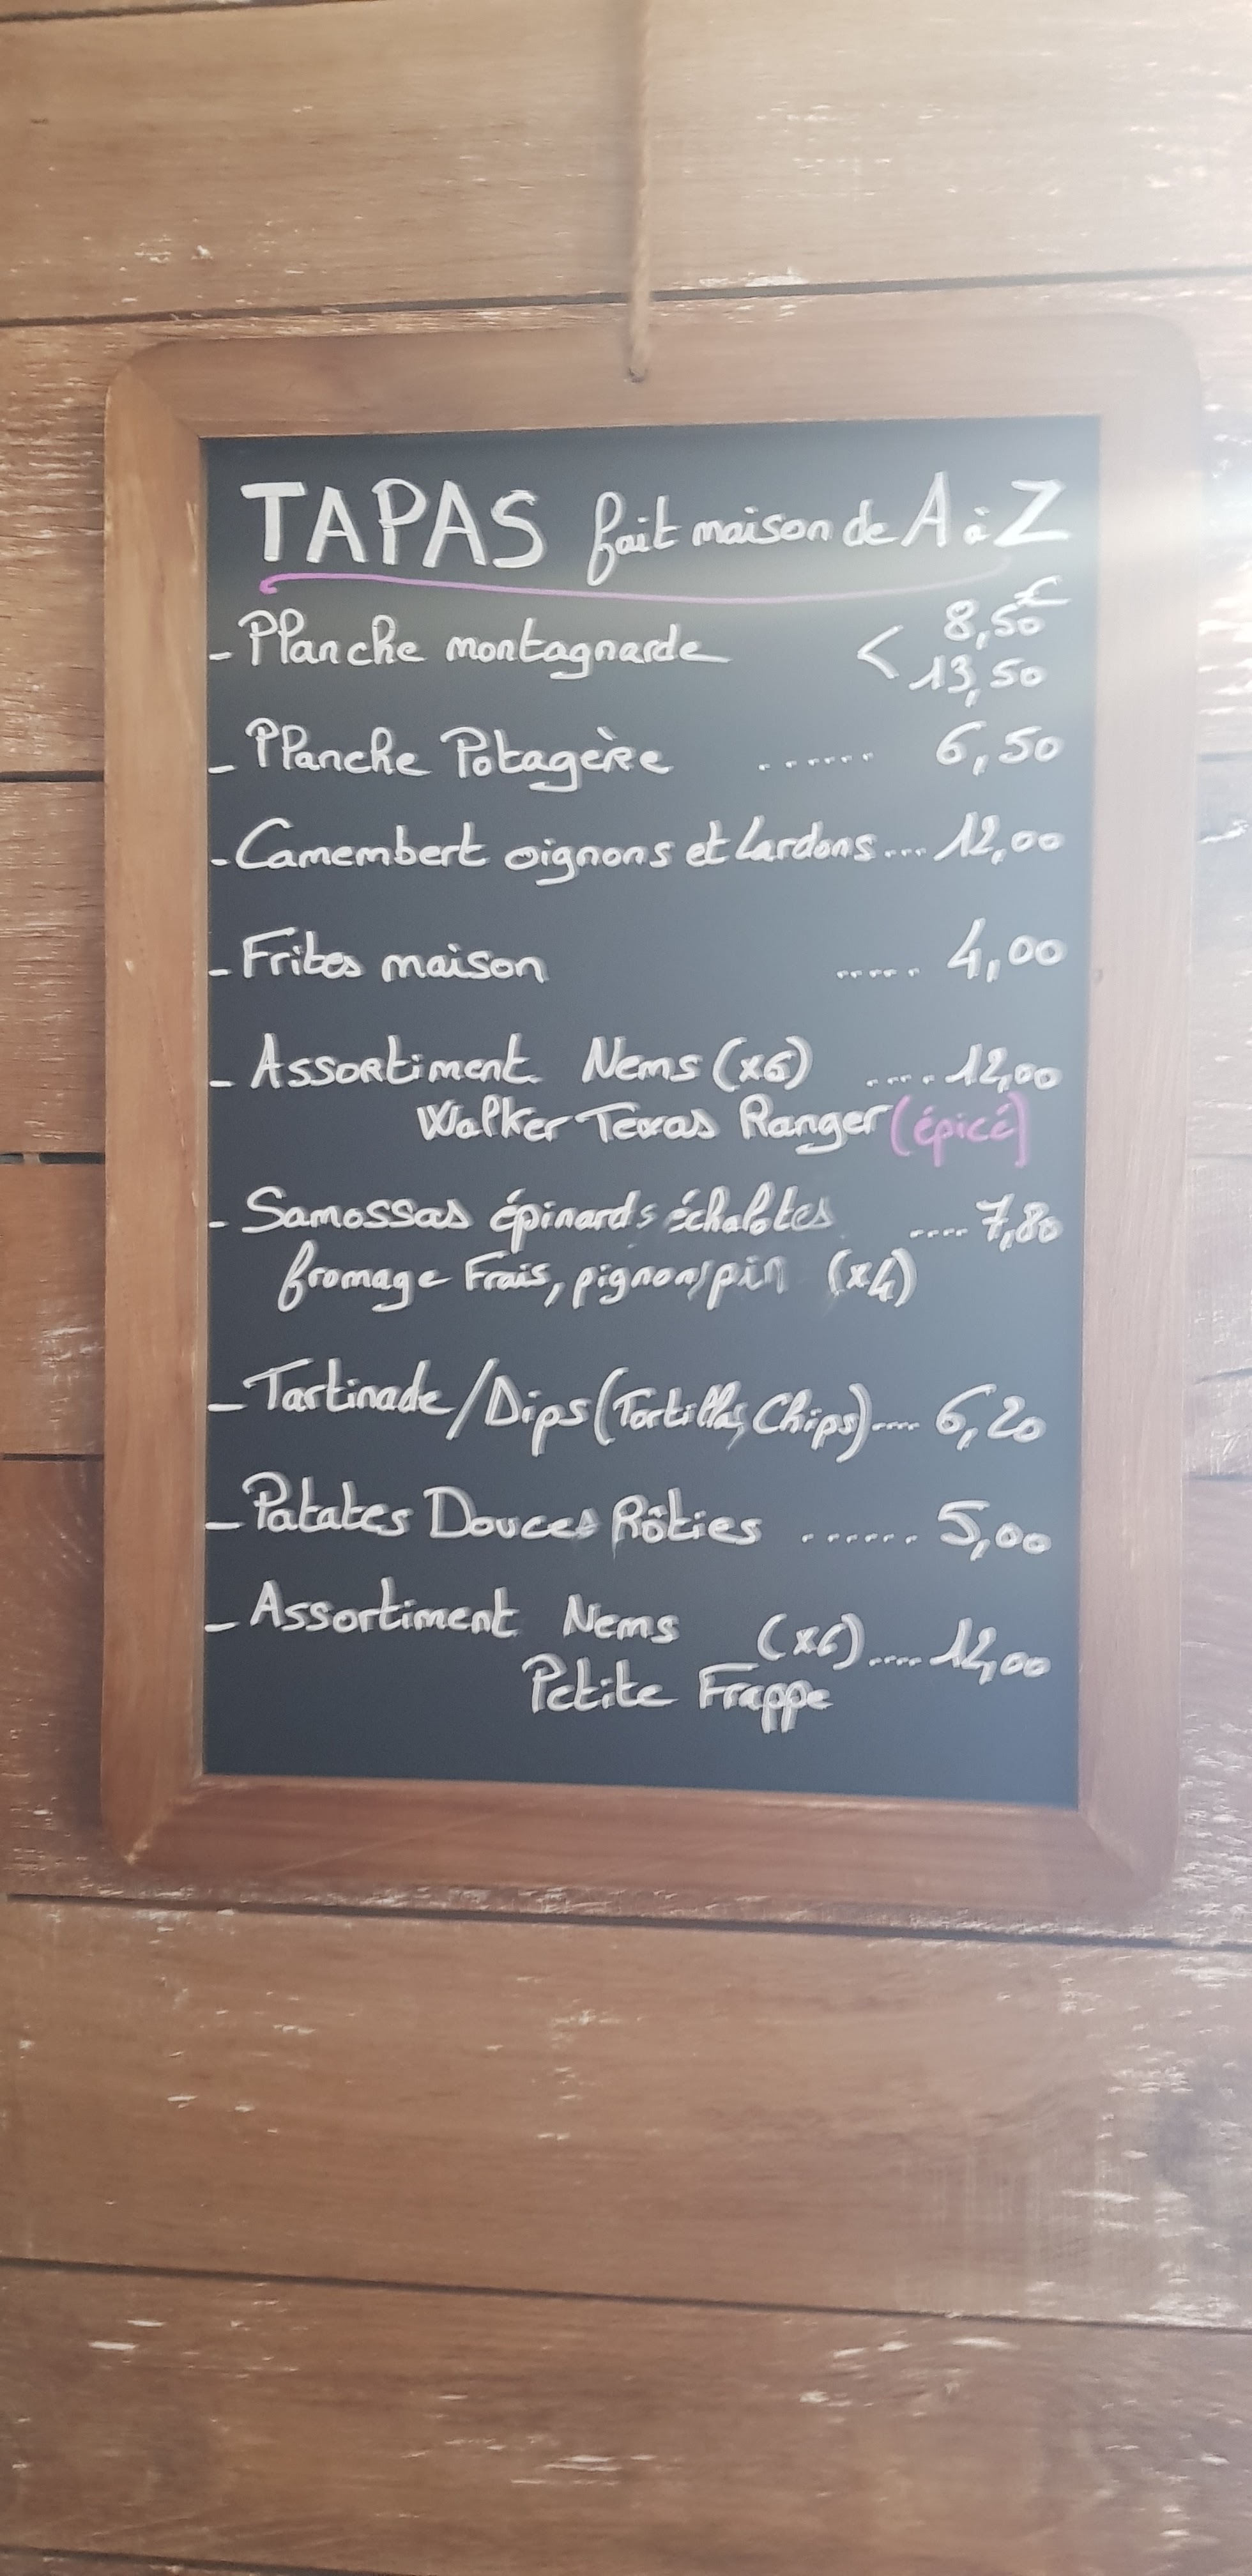 TAPAS fait maison de A à Z
- Planche montagnarde < 8,50€
13,50
- Planche Potagère ...... 6,50
- Camembert oignons et Lardons... 12,00
- Frites maison ..... 4,00
- Assortiment Nems (x6) .... 12,00
Walker Texas Ranger (épicé)
- Samossas épinards échalotes .... 7,80
fromage Frais, pignons/pin (x4)
- Tartinade/Dips (Tortillas, Chips).... 6,20
- Patates Douces Rôties ...... 5,00
- Assortiment Nems (x6).... 12,00
Petite Frappe